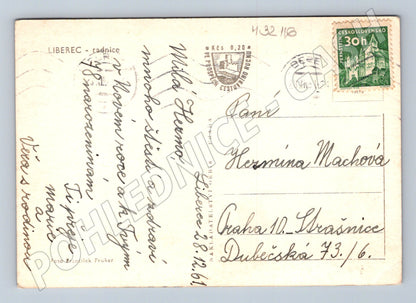 LIBEREC - radnice
Kčs 0,20
ČESKOSLOVENSKO
30h
Milá Hermo
mnoho štěstí a zdraví
v Novém roce a k Tvým
78 narozeninám
Ti přeje
mamě
a
Věra s rodinou
Liberec 28.12.61
Paní
Hermína Machová
Praha 10. - Strašnice
Dubečská 73./6.
Foto František Pruher
POHLEDNICE-ONLINE